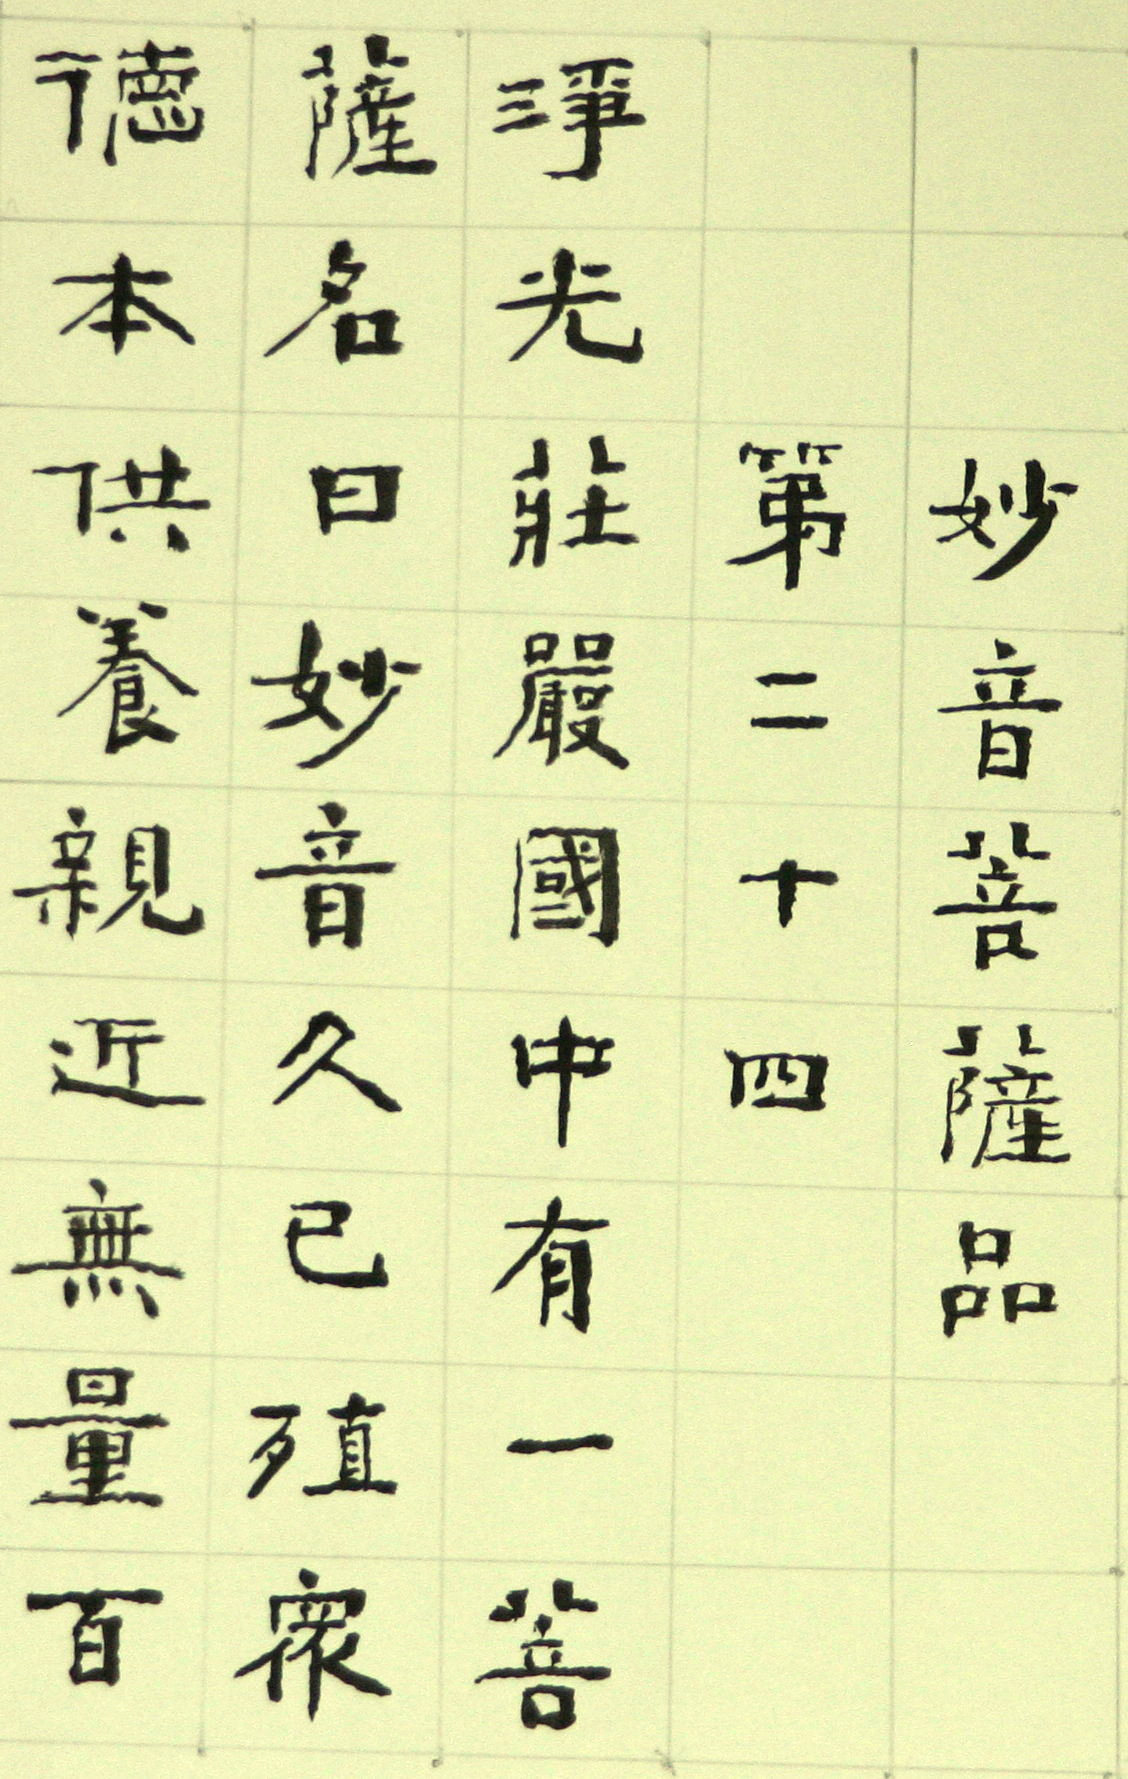 妙音菩薩品
第二十四
淨光莊嚴國中有一菩
薩名曰妙音久已殖衆
德本供養親近無量百